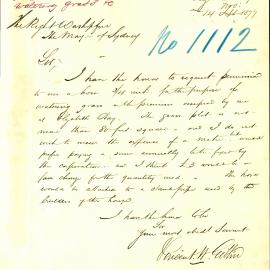 watering grass &c
14 Sept 1877
The Right Worshipful
The Mayor of Sydney
No 1112
Sir,
I have the honor to request permission
to use a hose for the purpose of
watering grass at the premises occupied by me
at Elizabeth Bay. The grass plot is not
more than 80 feet square and I do not
wish to incur the expense of a meter I would
prefer paying a sum annually like that by
the corporation and I think £3 would be a
fair charge for the quantity used. The hose
would be attached to a used by the
builders of the house.
I have the honor to be
Sir
Your most obedt Servant